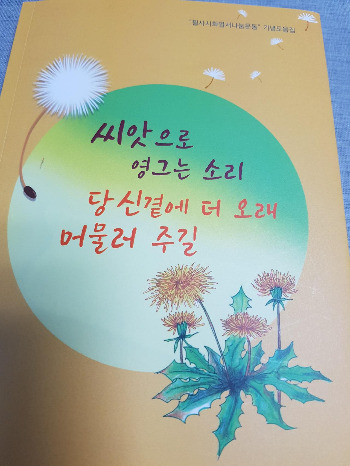 "필사시화엽서나눔운동" 기념모음집
씨앗으로
영그는 소리
당신곁에 더 오래
머물러 주길